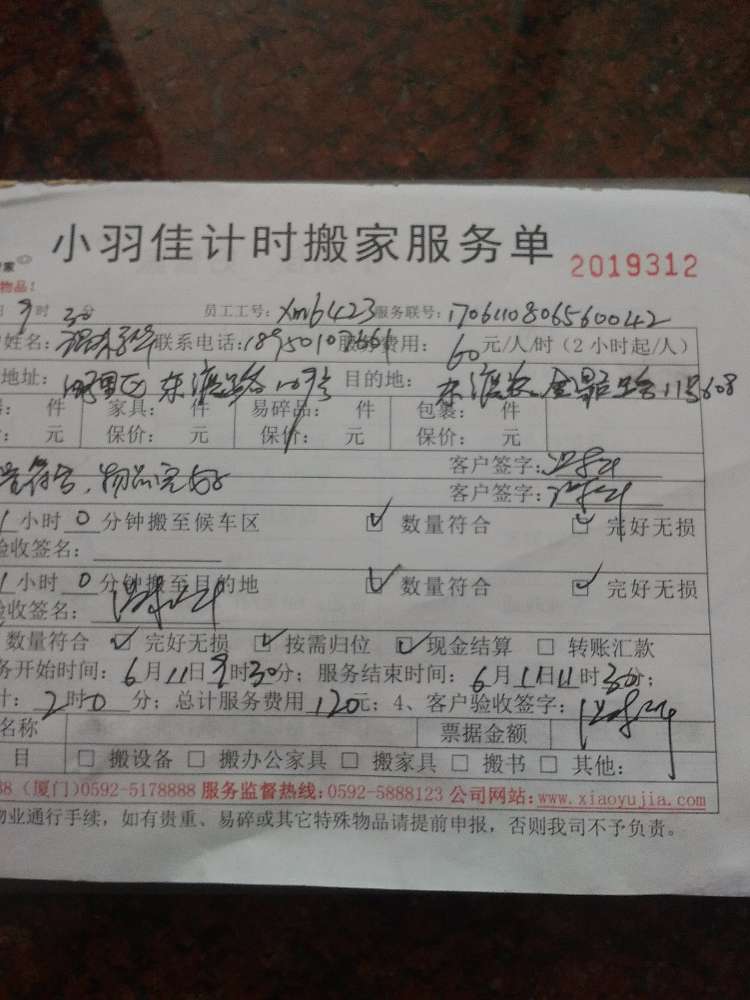 小羽佳计时搬家服务单
2019312
家
物品!
9时30分 员工工号:xm6423 服务联号:1706110806560042
姓名: 联系电话: 服务费用: 60元/人/时(2小时起/人)
地址: 东渡路109号 目的地: 东渡
: 件 家具: 件 易碎品: 件 包装: 件
: 元 保价: 元 保价: 元 保价: 元
客户签字:
符合,物品完好 客户签字:
1小时0分钟搬至候车区 ☑ 数量符合 ☑ 完好无损
验收签名:
1小时0分钟搬至目的地 ☑ 数量符合 ☑ 完好无损
验收签名:
数量符合 ☑ 完好无损 ☑ 按需归位 ☑ 现金结算 ☐ 转账汇款
务开始时间:6月11日9时30分;服务结束时间:6月11日11时30分;
计:2时0分;总计服务费用120元;4、客户验收签字:
名称 票据金额
目 ☐ 搬设备 ☐ 搬办公家具 ☐ 搬家具 ☐ 搬书 ☐ 其他:
68(厦门)0592-5178888 服务监督热线:0592-5888123 公司网站:www.xiaoyujia.com
物业通行手续,如有贵重、易碎或其它特殊物品请提前申报,否则我司不予负责。